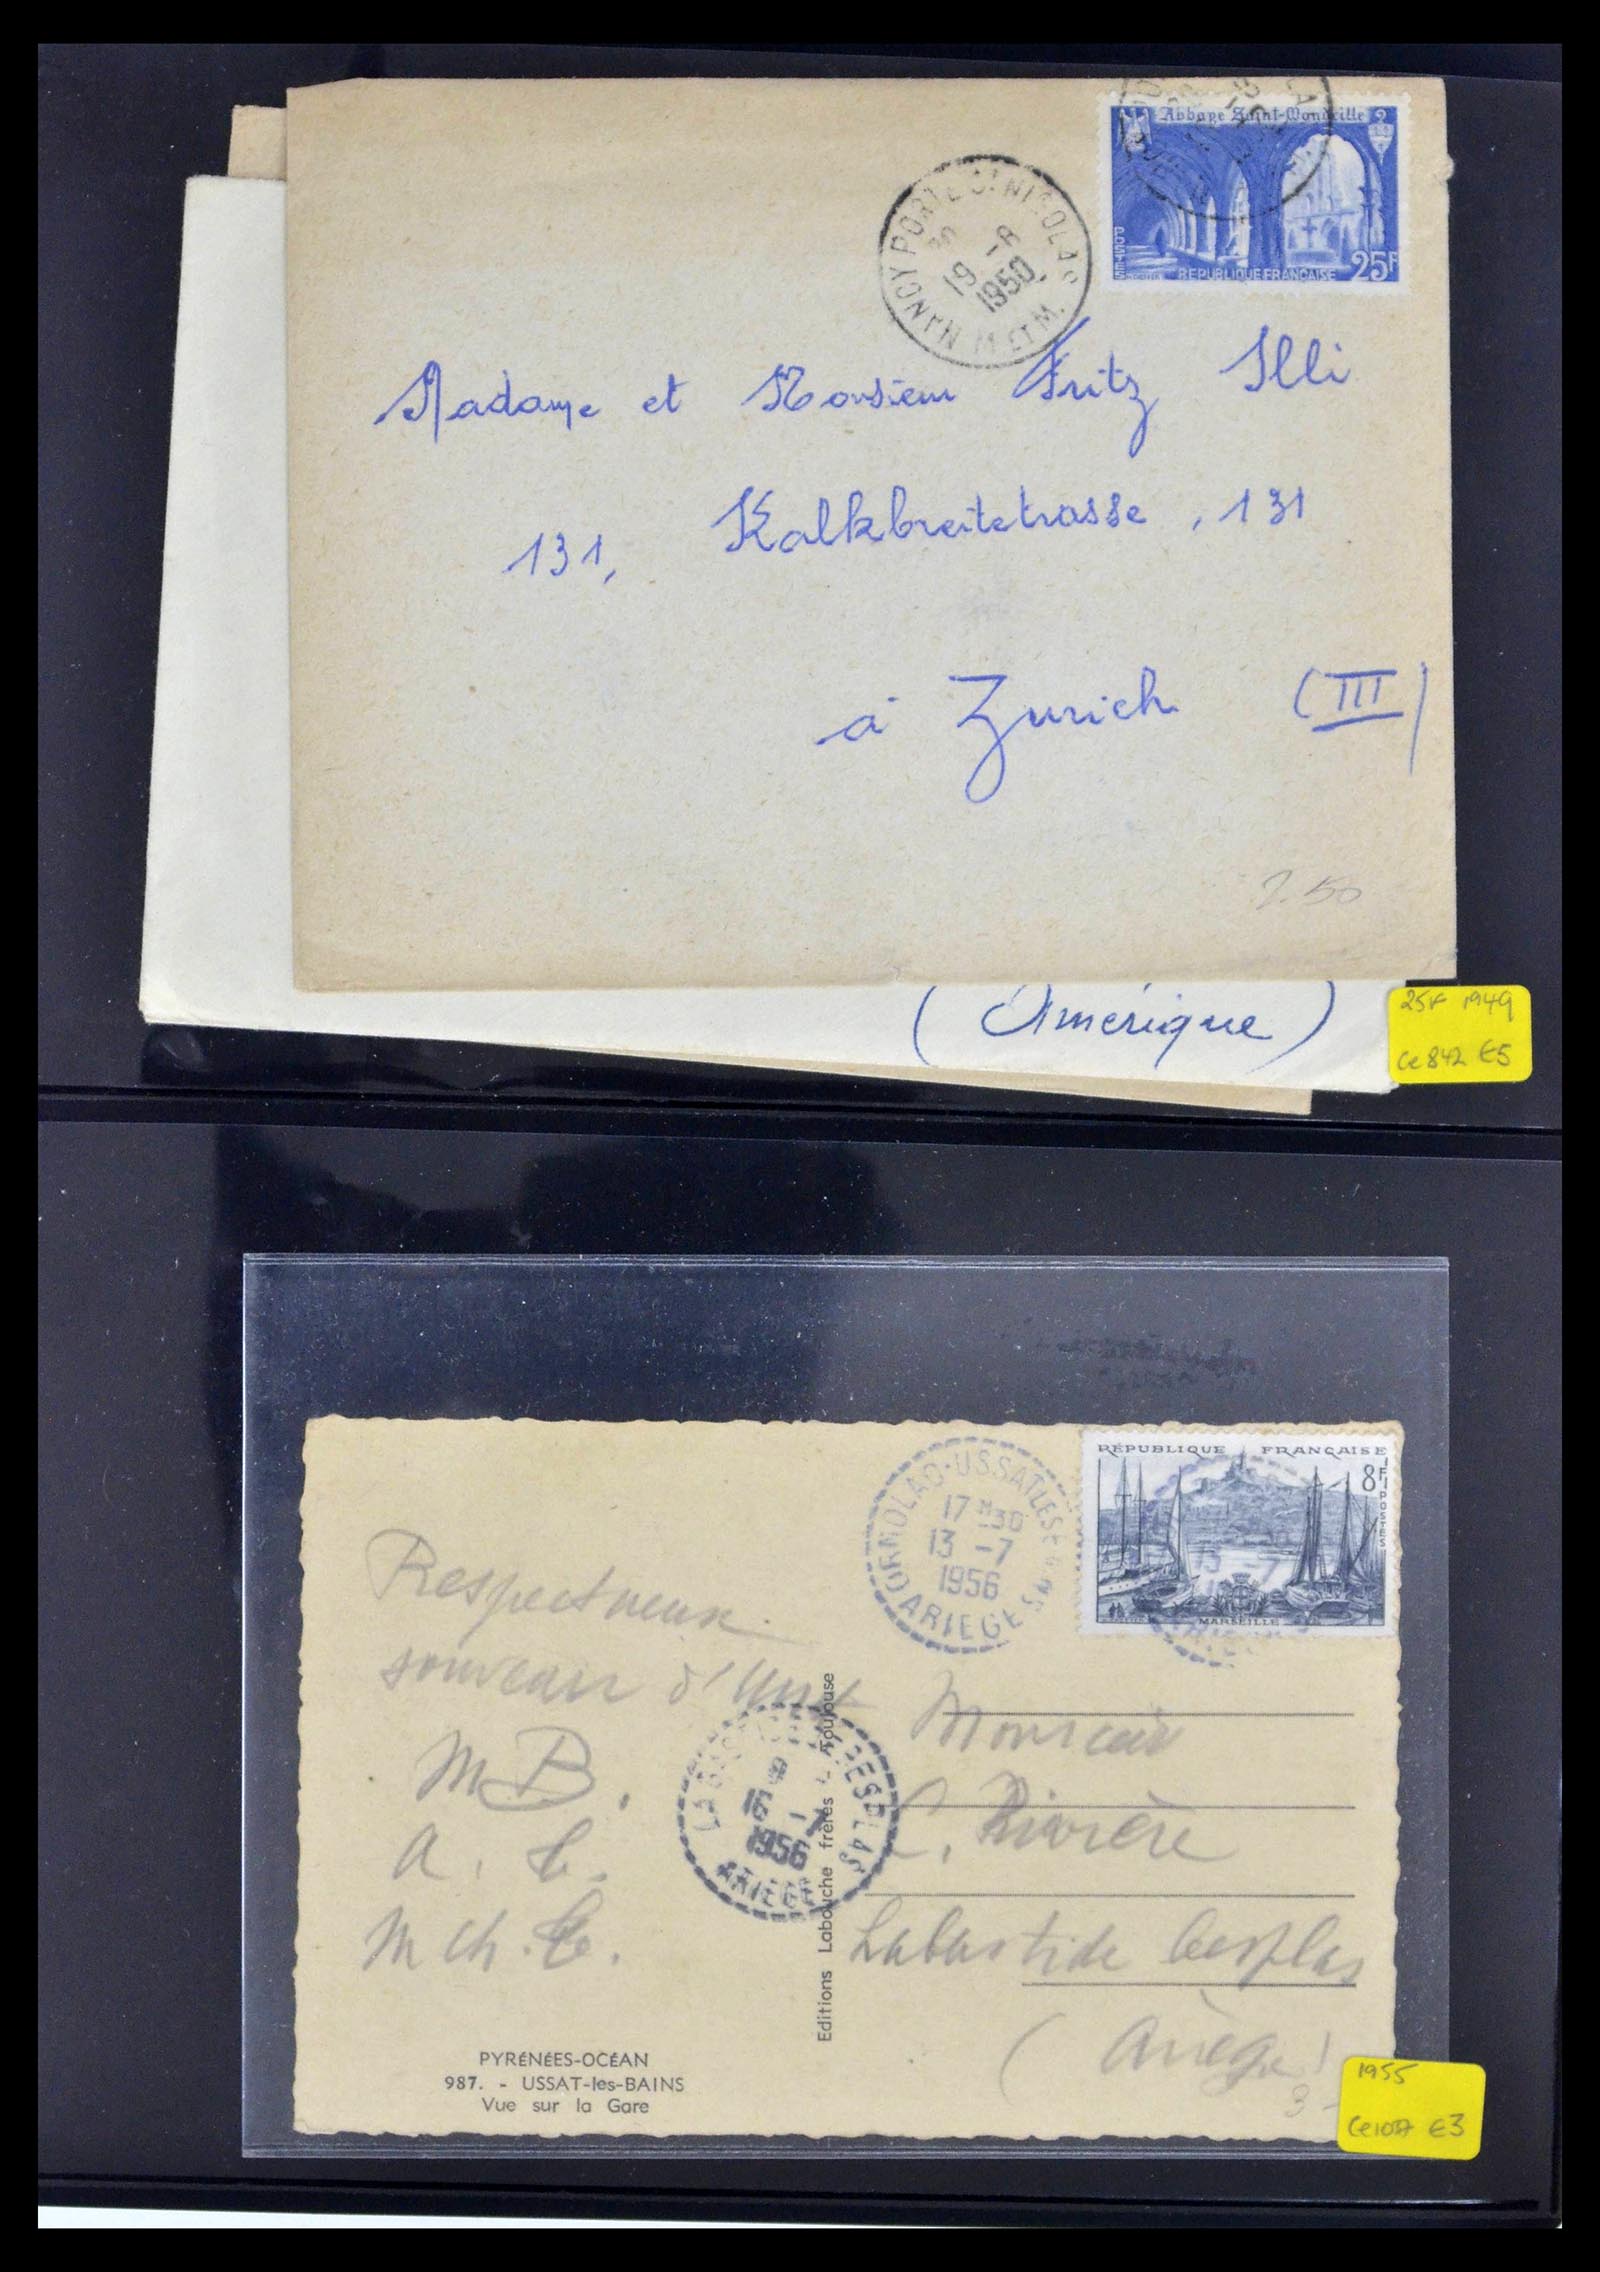 Abbaye Saint-Wandrille
POSTES
REPUBLIQUE FRANÇAISE 25F
NANCY PORTE St NICOLAS
19 -8
1950
M. ET M.
Madame et Monsieur Fritz Illi
131, Kalkbreitetrasse, 131
à Zurich (III)
2.50
(Amérique)
25F 1949
Ce 842 €5
RÉPUBLIQUE FRANÇAISE
8F
POSTES
MARSEILLE
ORNOLAC-USSAT LES BAINS
17 H 30
13 -7
1956
ARIEGE
Respectueux
souvenir d'Ussat
MB.
A. C.
M Ch. C.
1956
ARIEGE
Editions Labouche frères Toulouse
Monsieur
C. Rivière
Labastide Besplas
(Ariège)
3 -
PYRÉNÉES-OCÉAN
987. - USSAT-les-BAINS
Vue sur la Gare
1955
Ce1037 €3